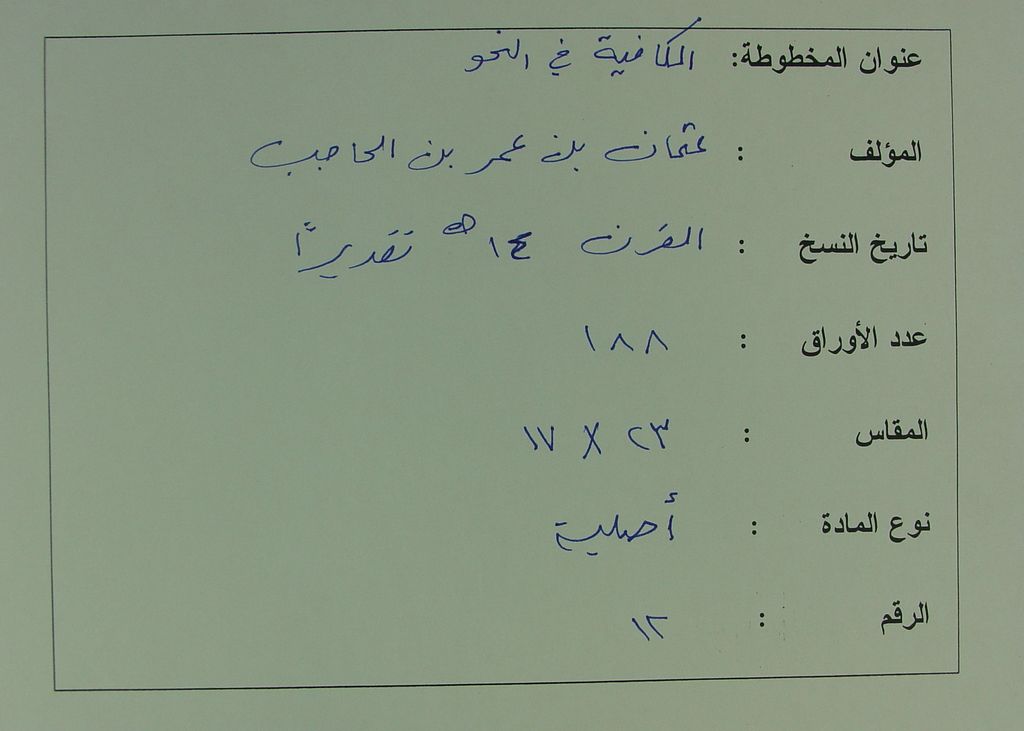 عنوان المخطوطة: الكافية في النحو
المؤلف : عثمان بن عمر بن الحاجب
تاريخ النسخ : القرن ١٤ هـ تقديرًا
عدد الأوراق : ١٨٨
المقاس : ٢٣ X ١٧
نوع المادة : أصلية
الرقم : ١٢